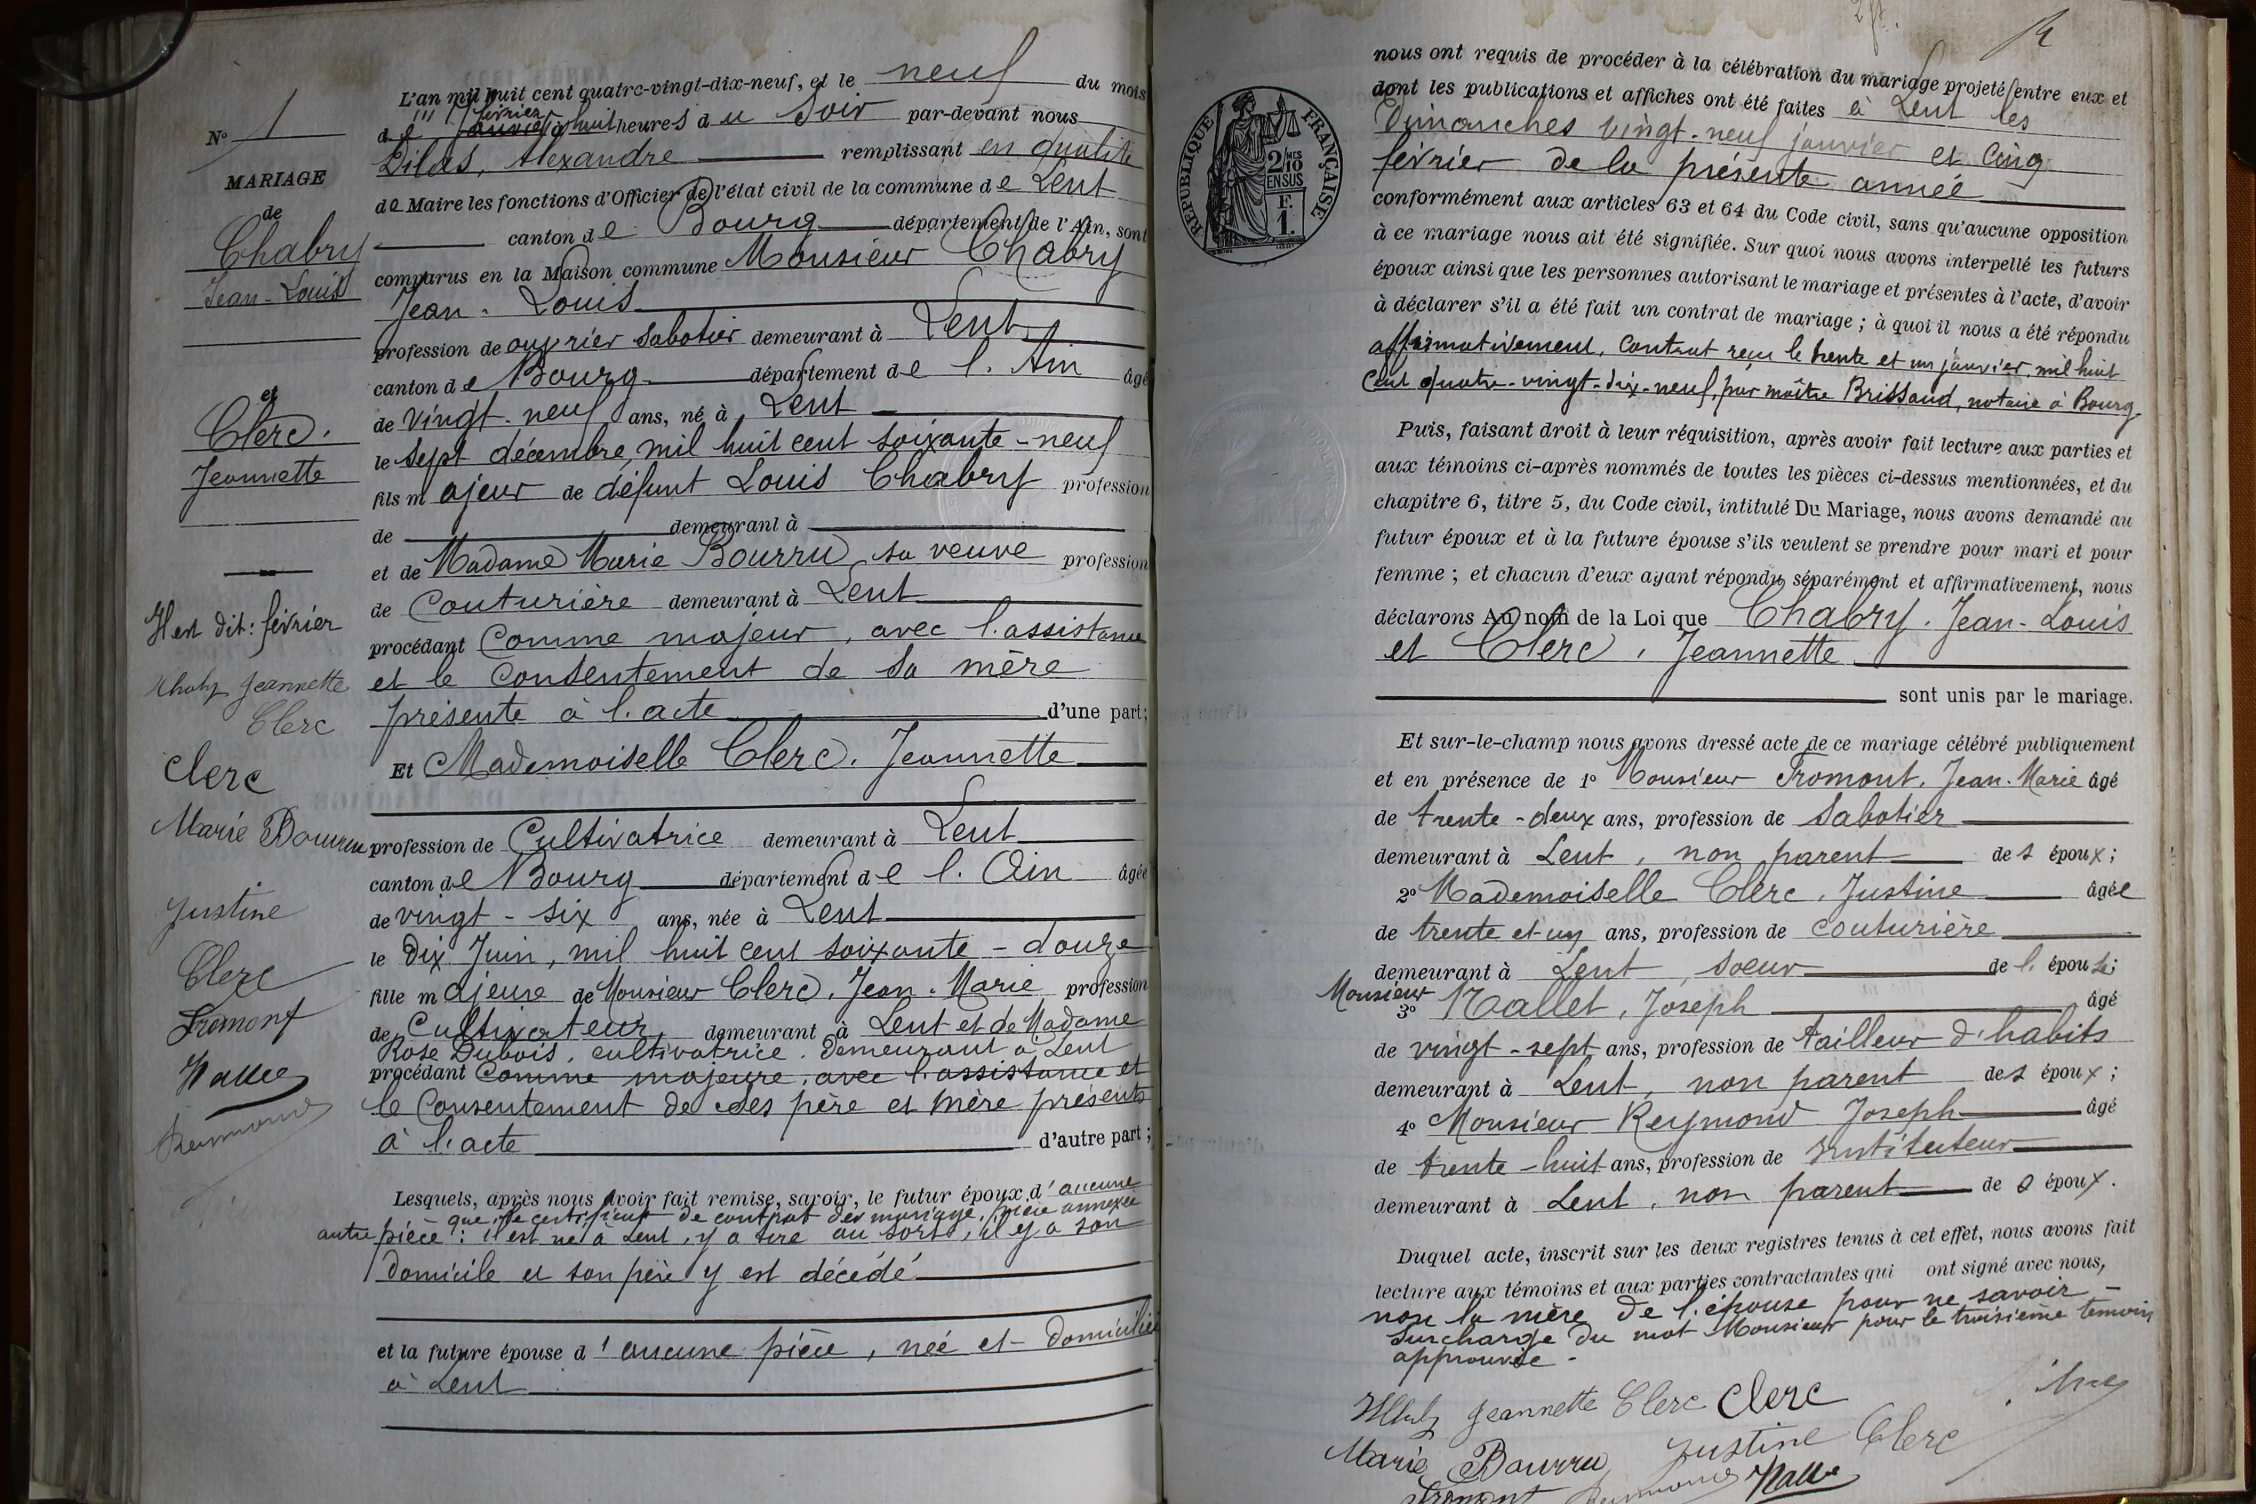 N° 1
MARIAGE
de
Chabry
Jean-Louis
et
Clerc.
Jeannette
Il est dit: février
Jeannette
Clerc
Clerc
Marie Bourru
Justine
Clerc
Fromont
L'an mil huit cent quatre-vingt-dix-neuf, et le neuf du mois
de janvier février à huit heures du soir par-devant nous
Dilas, Alexandre remplissant en qualité
de Maire les fonctions d'Officier de l'état civil de la commune de Lent
canton de Bourg département de l'Ain, sont
comparus en la Maison commune Monsieur Chabry
Jean-Louis
profession de ouvrier sabotier demeurant à Lent
canton de Bourg département de l'Ain âgé
de vingt-neuf ans, né à Lent
le sept décembre, mil huit cent soixante-neuf
fils majeur de défunt Louis Chabry profession
de demeurant à
et de Madame Marie Bourru sa veuve profession
de Couturière demeurant à Lent
procédant Comme majeur, avec l'assistance
et le Consentement de sa mère
présente à l'acte d'une part;
Et Mademoiselle Clerc, Jeannette
profession de Cultivatrice demeurant à Lent
canton de Bourg département de l'Ain âgée
de vingt-six ans, née à Lent
le dix Juin, mil huit cent soixante-douze
fille majeure de Monsieur Clerc, Jean-Marie profession
de Cultivateur, demeurant à Lent et de Madame
Rose Dubois, cultivatrice, demeurant à Lent
procédant Comme majeure, avec l'assistance et
le Consentement de ses père et mère présents
à l'acte d'autre part;
Lesquels, après nous avoir fait remise, savoir, le futur époux d'aucune
que le certificat de contrat de mariage, pièce annexée
autre pièce: il est né à Lent, y a tiré au sort, il y a son
domicile et son père y est décédé
et la future épouse d'aucune pièce, née et domiciliée
à Lent
2 f.
REPUBLIQUE FRANÇAISE
2/10 EN SUS
F. 1.
nous ont requis de procéder à la célébration du mariage projeté entre eux et
dont les publications et affiches ont été faites à Lent les
Dimanches vingt-neuf janvier et cinq
février de la présente année
conformément aux articles 63 et 64 du Code civil, sans qu'aucune opposition
à ce mariage nous ait été signifiée. Sur quoi nous avons interpellé les futurs
époux ainsi que les personnes autorisant le mariage et présentes à l'acte, d'avoir
à déclarer s'il a été fait un contrat de mariage; à quoi il nous a été répondu
affirmativement, Contrat reçu le trente et un janvier, mil huit
cent quatre-vingt-dix-neuf, par maître Brissaud, notaire à Bourg.
Puis, faisant droit à leur réquisition, après avoir fait lecture aux parties et
aux témoins ci-après nommés de toutes les pièces ci-dessus mentionnées, et du
chapitre 6, titre 5, du Code civil, intitulé Du Mariage, nous avons demandé au
futur époux et à la future épouse s'ils veulent se prendre pour mari et pour
femme; et chacun d'eux ayant répondu séparément et affirmativement, nous
déclarons Au nom de la Loi que Chabry, Jean-Louis
et Clerc, Jeannette
sont unis par le mariage.
Et sur-le-champ nous avons dressé acte de ce mariage célébré publiquement
et en présence de 1° Monsieur Fromont, Jean-Marie âgé
de trente-deux ans, profession de Sabotier
demeurant à Lent, non parent des époux;
2° Mademoiselle Clerc, Justine âgée
de trente et un ans, profession de couturière
demeurant à Lent, soeur de l'épouse;
Monsieur
3° Nallet, Joseph âgé
de vingt-sept ans, profession de tailleur d'habits
demeurant à Lent, non parent des époux;
4° Monsieur Reymond Joseph âgé
de trente-huit ans, profession de Instituteur
demeurant à Lent, non parent des époux.
Duquel acte, inscrit sur les deux registres tenus à cet effet, nous avons fait
lecture aux témoins et aux parties contractantes qui ont signé avec nous,
non la mère de l'épouse pour ne savoir –
Surcharge du mot Monsieur pour le troisième témoin
approuvée –
Jeannette Clerc Clerc
Marie Bourru Justine Clerc
Fromont